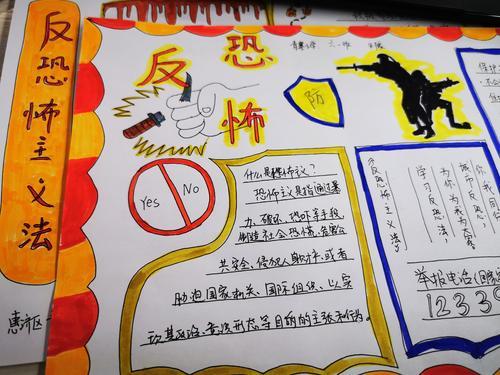 反恐怖主义法
反恐怖
防
Yes
No
什么是恐怖主义?
恐怖主义是指通过暴
力、破坏、恐吓等手段,
制造社会恐慌、危害公
共安全、侵犯人身财产,或者
胁迫国家机关、国际组织,以实
现其政治、意识形态等目的的主张和行为。
《反恐怖主义法》
学习反恐法,
为你为我为大家
举报电话
1233
惠济区